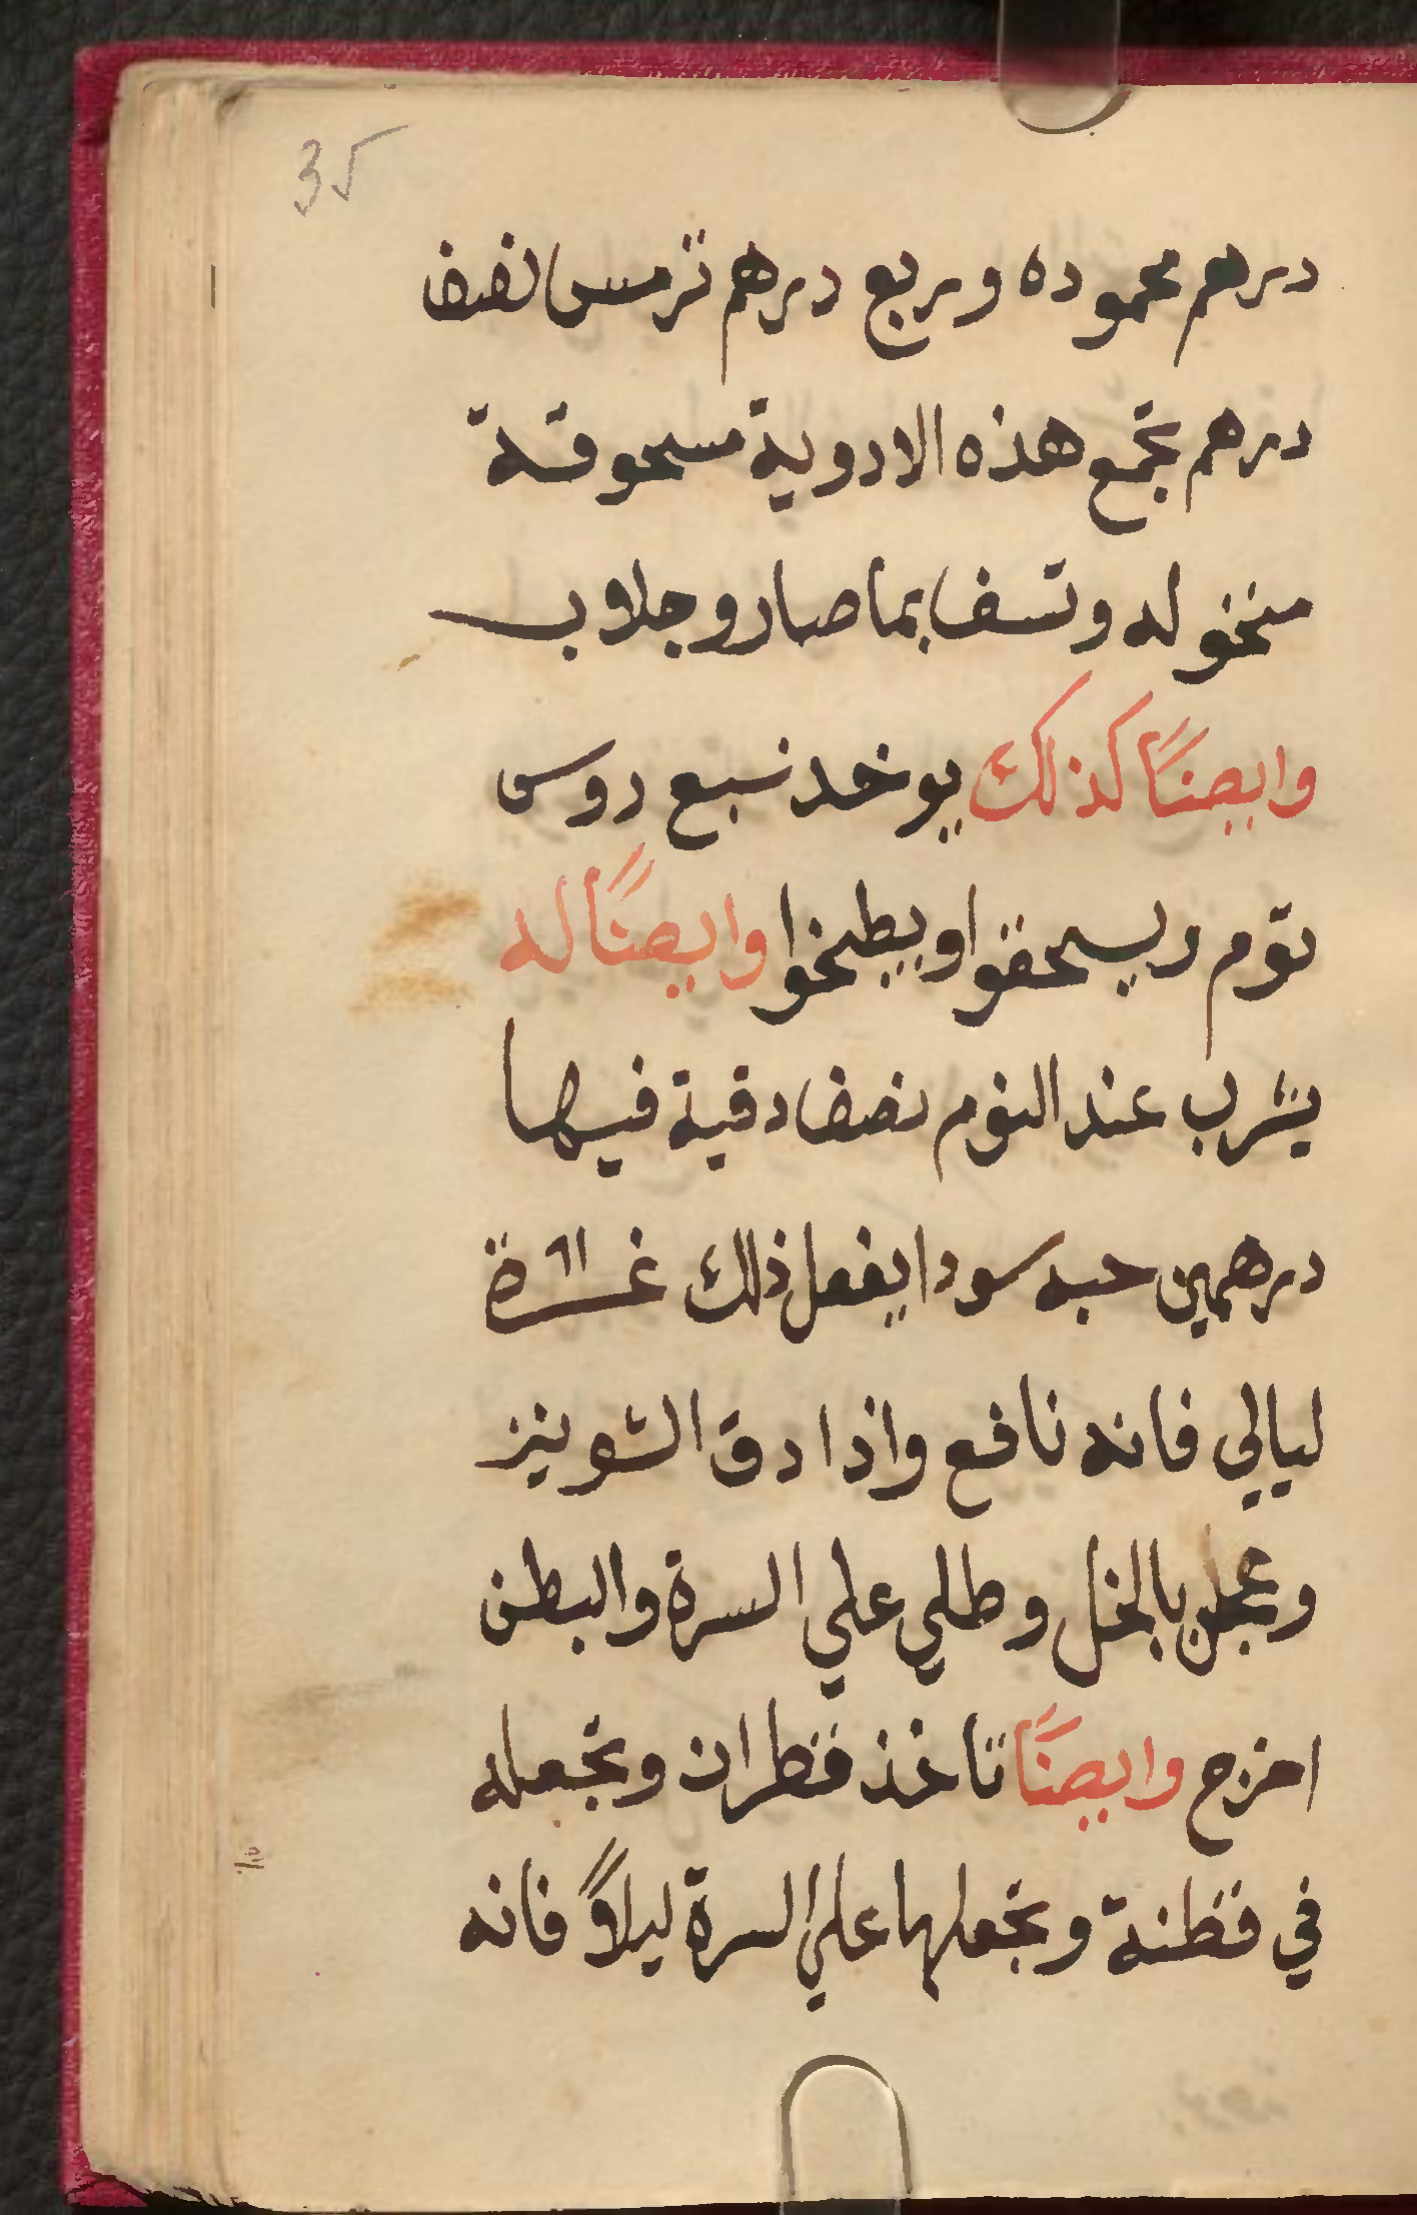 35
درهم محموده وربع درهم ترمس نصف
درهم تجمع هذه الادوية مسحوقة
منخوله وتسف بما صار وجلاب
وايضًا كذلك يوخد سبع روس
توم ويسحقوا ويطبخوا وايضًا له
يشرب عند النوم نصف وقية فيها
درهمين حبه سودا يفعل ذلك عشرة
ليالي فانه نافع واذا دق الشونيز
وعجن بالخل وطلي علي السرة والبطن
اخرج وايضًا تاخذ قطران وتجعله
في قطنة وتجعلها علي السرة ليلاً فانه